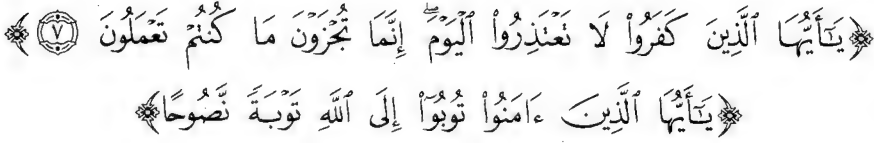 ﴿يَـٰٓأَيُّهَا ٱلَّذِينَ كَفَرُوا۟ لَا تَعْتَذِرُوا۟ ٱلْيَوْمَ ۖ إِنَّمَا تُجْزَوْنَ مَا كُنتُمْ تَعْمَلُونَ ٧﴾
﴿يَـٰٓأَيُّهَا ٱلَّذِينَ ءَامَنُوا۟ تُوبُوٓا۟ إِلَى ٱللَّهِ تَوْبَةً نَّصُوحًا﴾